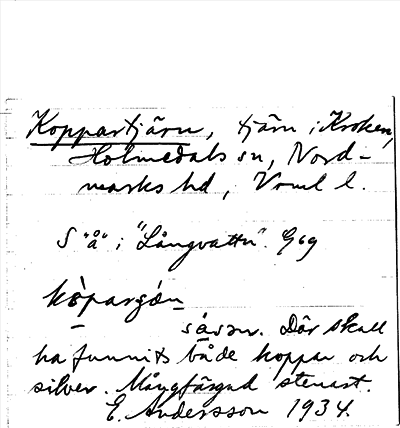 Koppartjärn, tjärn i Kroken,
Holmedals sn, Nord-
marks hd, Vrml l.
S "å" i "Långvattn". G69
kòpaṛǥǝn
såsom. Där skall
ha funnits både koppar och
silver. Mångfärgad stenart.
E. Andersson 1934.